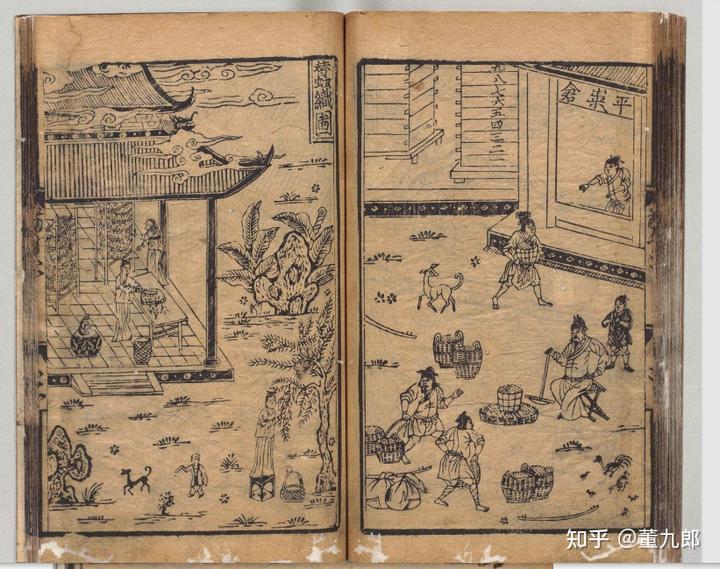 平粜倉
九八七六五四三二一
織圖
知乎 @董九郎